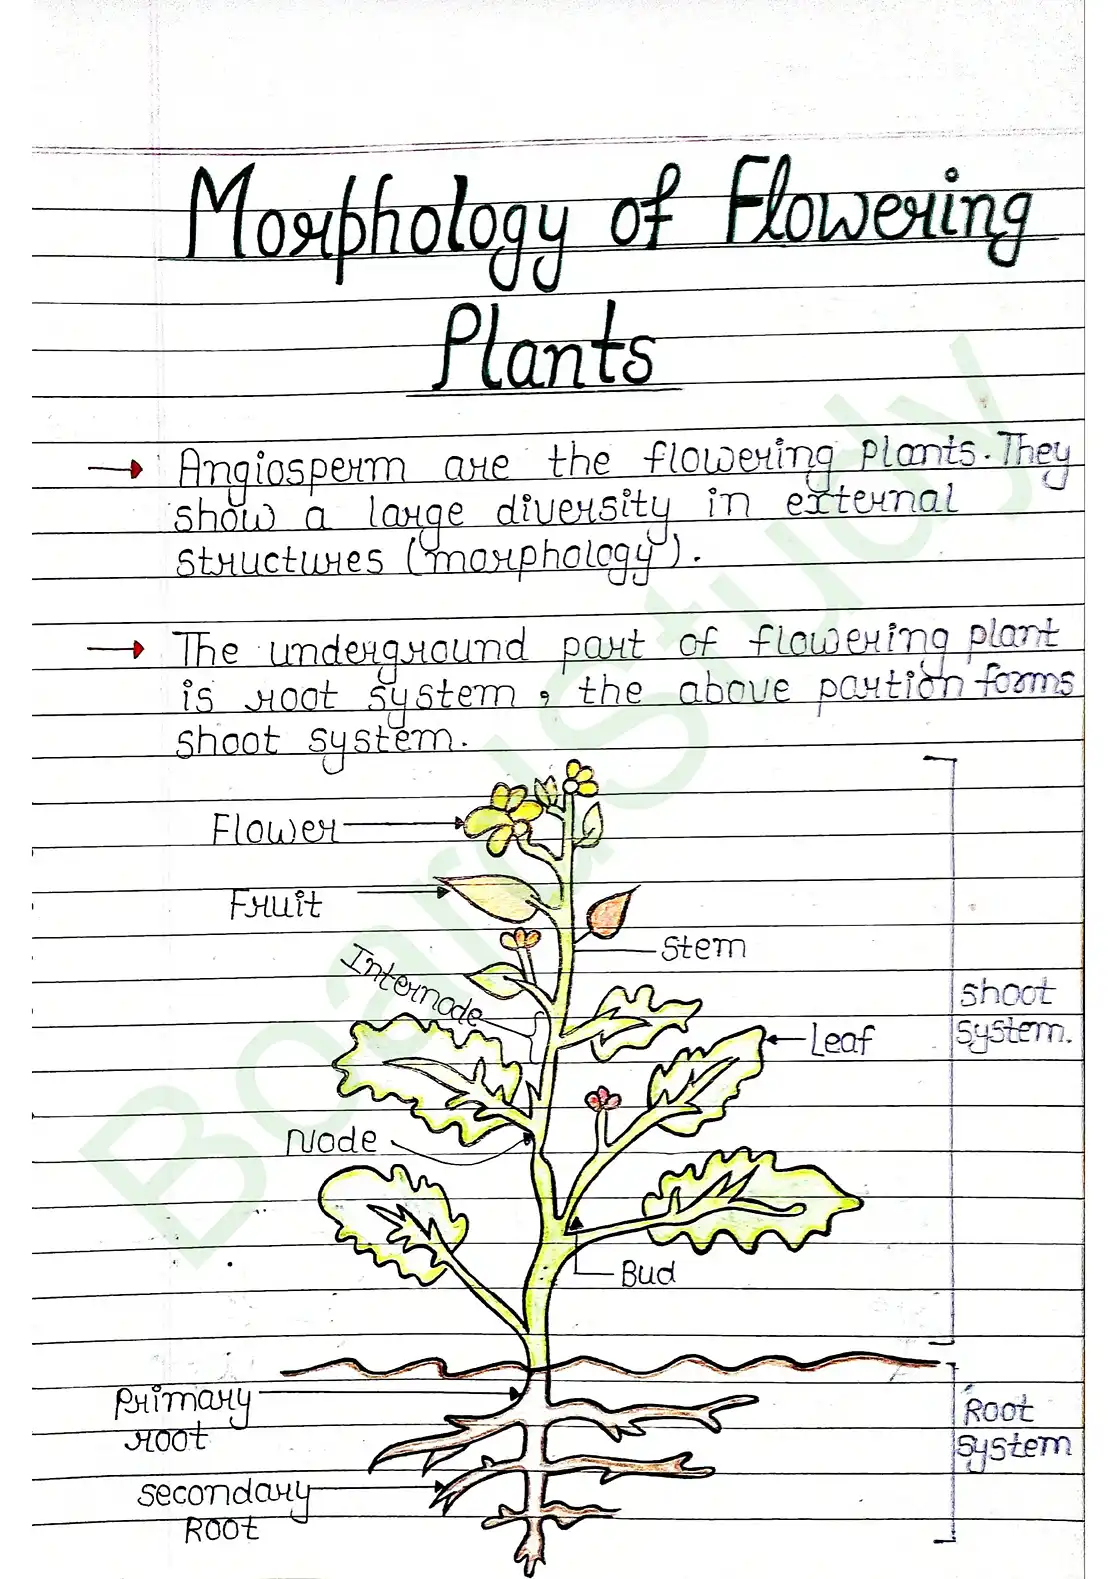 Morphology of Flowering
Plants
→ Angiosperm are the flowering Plants. They
show a large diversity in external
structures (morphology).
→ The underground part of flowering plant
is root system, the above partion forms
shoot system.
Flower
Fruit
Stem
Internode
shoot
system.
Leaf
Node
Bud
Primary
root
Root
system
secondary
Root
BoardStudy